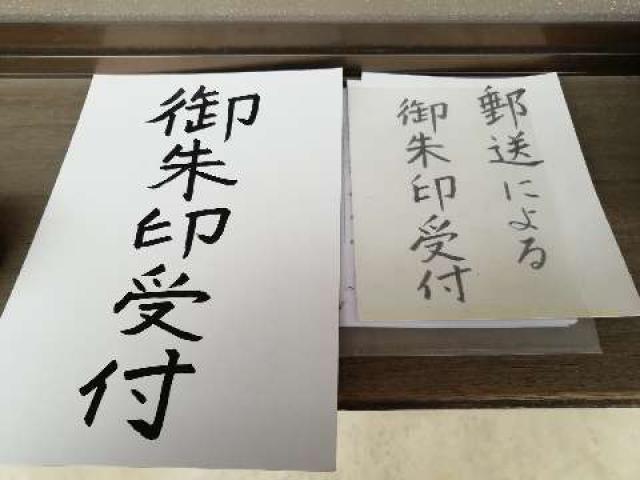 御朱印受付
郵送による
御朱印受付